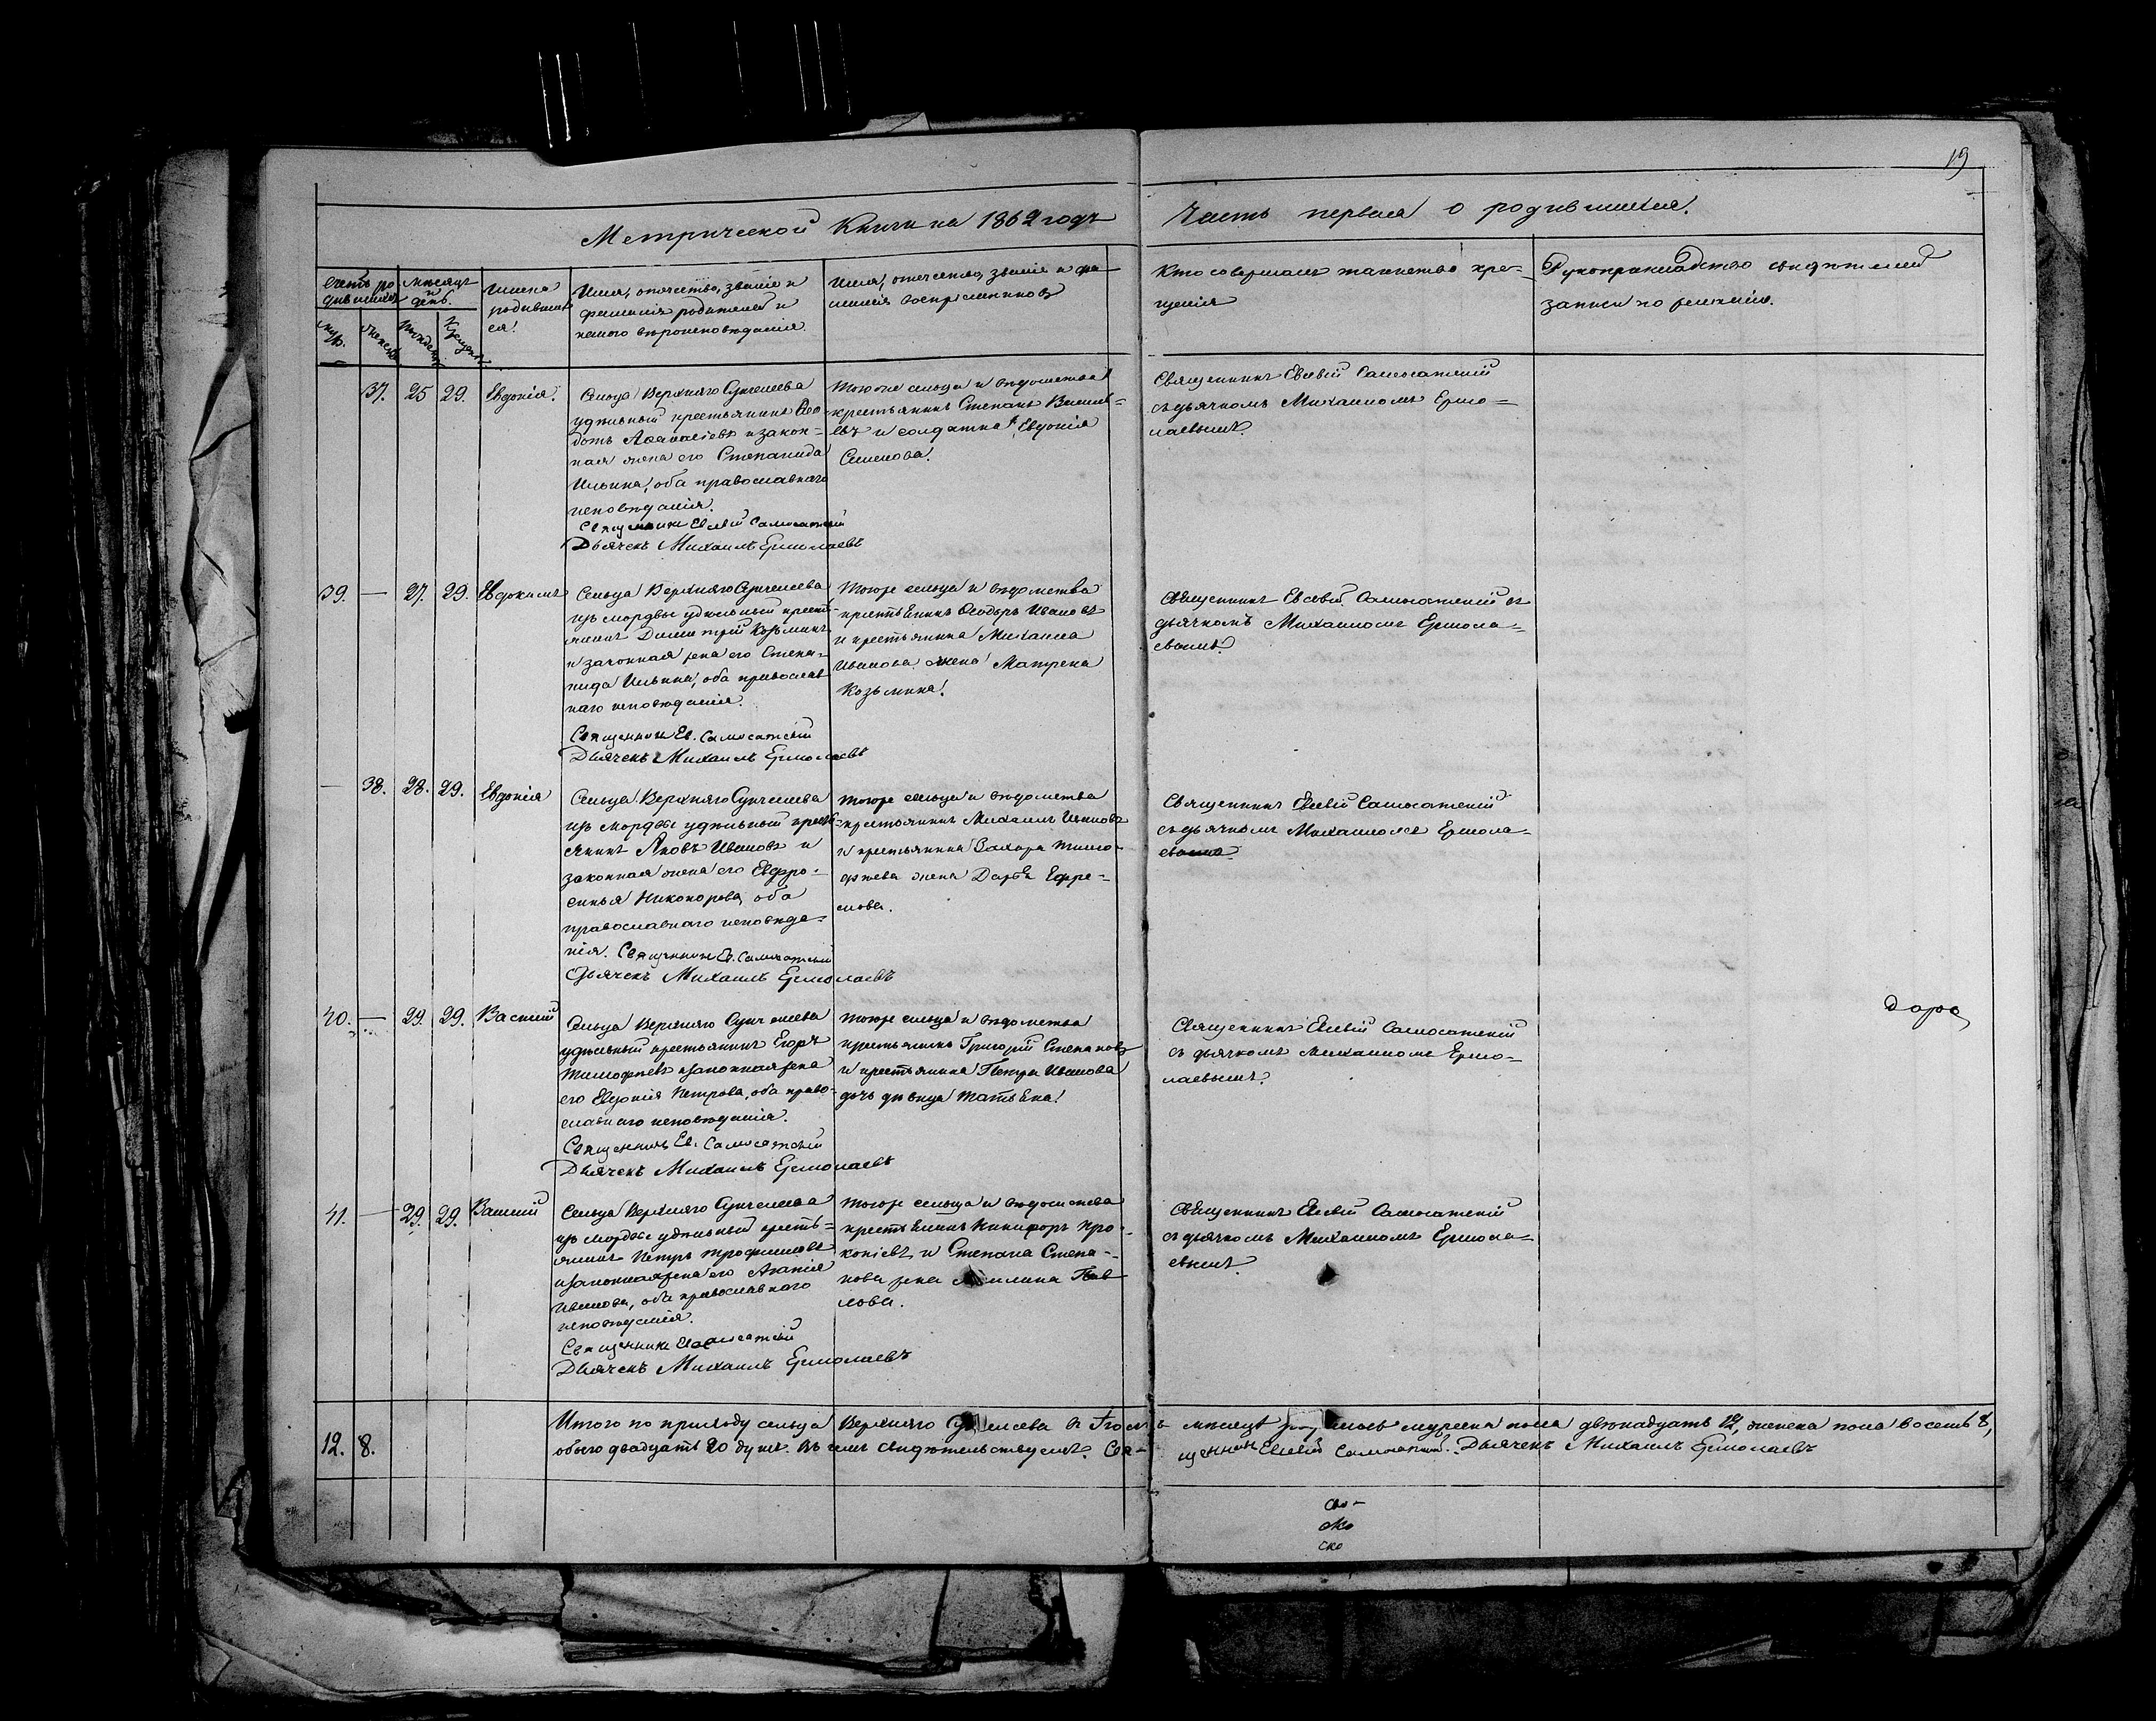 19
Метрической Книги на 1862 годъ
Часть первая о родившихся.
Счетъ ро-
дившихся
муж.
женск.
Мѣсяцъ
и
день.
рожденія
крещенія
Имена
родивших
ся.
Имя, отчество, званіе и
фамилія родителей и
какого вѣроисповѣданія.
Имя, отчество, званіе и фа-
милія воспріемниковъ
Кто совершалъ таинство кре-
щенія
Рукоприкладство свидѣтелей
записи по желанію.
37. 25 29. Евдокія.
Сельца Верхняго Сунчелеева
удѣльный крестьянинъ Ѳео-
дотъ Аѳанасіевъ и закон-
ная жена его Степанида
Ильина, оба православнаго
исповѣданія.
Священникъ Евсевій Самосатскій
Дьячекъ Михаилъ Ермолаевъ
Тогоже сельца и вѣдомства
крестьянинъ Степанъ Василь-
евъ и солдатка Евдокія
Семенова.
Священникъ Евсевій Самосатскій
съ дьячкомъ Михаиломъ Ермо-
лаевымъ.
39. — 27. 29. Евдокимъ
Сельца Верхняго Сунчелеева
изъ мордвы удѣльный кресть-
янинъ Димитрій Козьминъ
и законная жена его Степа-
нида Ильина, оба православ
наго исповѣданія.
Священникъ Ев. Самосатскій
Дьячекъ Михаилъ Ермолаевъ
Тогоже сельца и вѣдомства
крестьянинъ Ѳеодоръ Ивановъ
и крестьянина Михаила
Иванова жена Матрена
Козьмина.
Священникъ Евсевій Самосатскій съ
дьячкомъ Михаиломъ Ермола-
евымъ.
— 38. 28. 29. Евдокія
Сельца Верхняго Сунчелеева
изъ мордвы удѣльный кресть-
янинъ Яковъ Ивановъ и
законная жена его Евфро-
синья Никонорова, оба
православнаго исповѣда-
нія. Священникъ Ев. Самосатскій
Дьячекъ Михаилъ Ермолаевъ
Тогоже сельца и вѣдомства
крестьянинъ Михаилъ Ивановъ
и крестьянина Захара Тимо-
фѣева жена Дарья Ефре-
мова.
Священникъ Евсевій Самосатскій
съ дьячкомъ Михаиломъ Ермола-
евымъ.
40. — 29. 29. Василій
Сельца Верхняго Сунчелеева
удѣльный крестьянинъ Егоръ
Тимофѣевъ и законная жена
его Евдокія Петрова, оба право-
славнаго исповѣданія.
Священникъ Ев. Самосатскій
Дьячекъ Михаилъ Ермолаевъ
Тогоже сельца и вѣдомства
крестьянинъ Григорій Степановъ
и крестьянина Петра Иванова
дочь дѣвица Татьяна.
Священникъ Евсевій Самосатскій
съ дьячкомъ Михаиломъ Ермо-
лаевымъ.
доро
41. — 29. 29. Василій
Сельца Верхняго Сунчелеева
изъ мордвы удѣльный кресть-
янинъ Петръ Трофимовъ
и законная жена его
Иванова, оба православнаго
исповѣданія.
Священникъ
Дьячекъ Михаилъ Ермолаевъ
Тогоже сельца и вѣдомства
крестьянинъ Никифоръ Про-
копіевъ и Степана Степа-
нова жена Пав-
лова.
Священникъ Евсевій Самосатскій
съ дьячкомъ Михаиломъ Ермола-
евымъ.
12. 8.
Итого по приходу сельца Верхняго въ мѣсяцѣ мужеска пола двѣнадцать 12, женска пола восемь 8,
обоего двадцать 20 душъ. Въ чемъ свидѣтельствуемъ. Свя-щенникъ Евсевій Самосатскій. Дьячекъ Михаилъ Ермолаевъ
ско